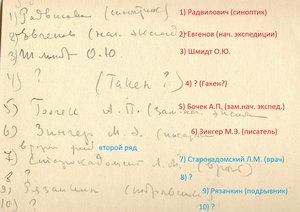 1) Радвилович (синоптик) 1) Радвилович (синоптик)
2) Евгенов (нач. 2) Евгенов (нач. экспедиции)
3) Шмидт О.Ю. 3) Шмидт О.Ю.
4) ? (Гакен?) 4) ? (Гакен?)
5) А.П. (зам. нач. 5) Бочек А.П. (зам.нач. экспед.)
6) Зингер М.Э. 6) Зингер М.Э. (писатель)
второй ряд второй ряд
7) Старокадомский Л.М. (врач) 7) Старокадомский Л.М. (врач)
8) ? 8) ?
9) Рязанкин 9) Рязанкин (подрывник)
10) ? 10) ?